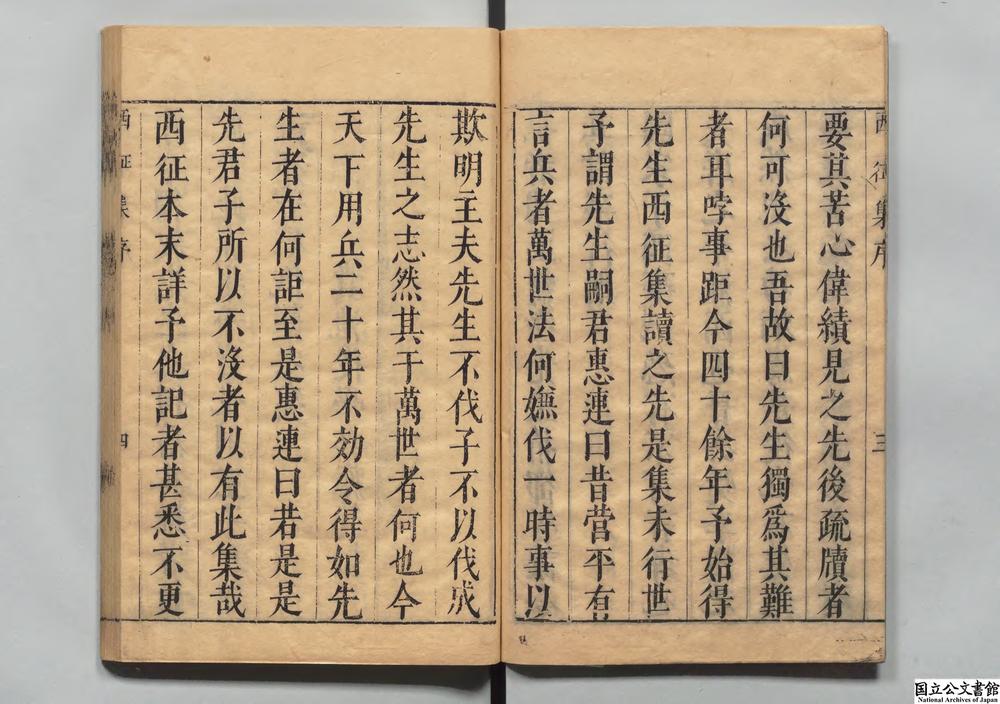 西征集序
三
要其苦心偉績見之先後疏牘者
何可沒也吾故曰先生獨爲其難
者耳哱事距今四十餘年予始得
先生西征集讀之先是集未行世
予謂先生嗣君惠連曰昔營平有
言兵者萬世法何嫌伐一時事以
欺明主夫先生不伐子不以伐成
先生之志然其于萬世者何也今
天下用兵二十年不効令得如先
生者在何詎至是惠連曰若是是
先君子所以不沒者以有此集哉
西征本末詳予他記者甚悉不更
西征集序
四
国立公文書館
National Archives of Japan